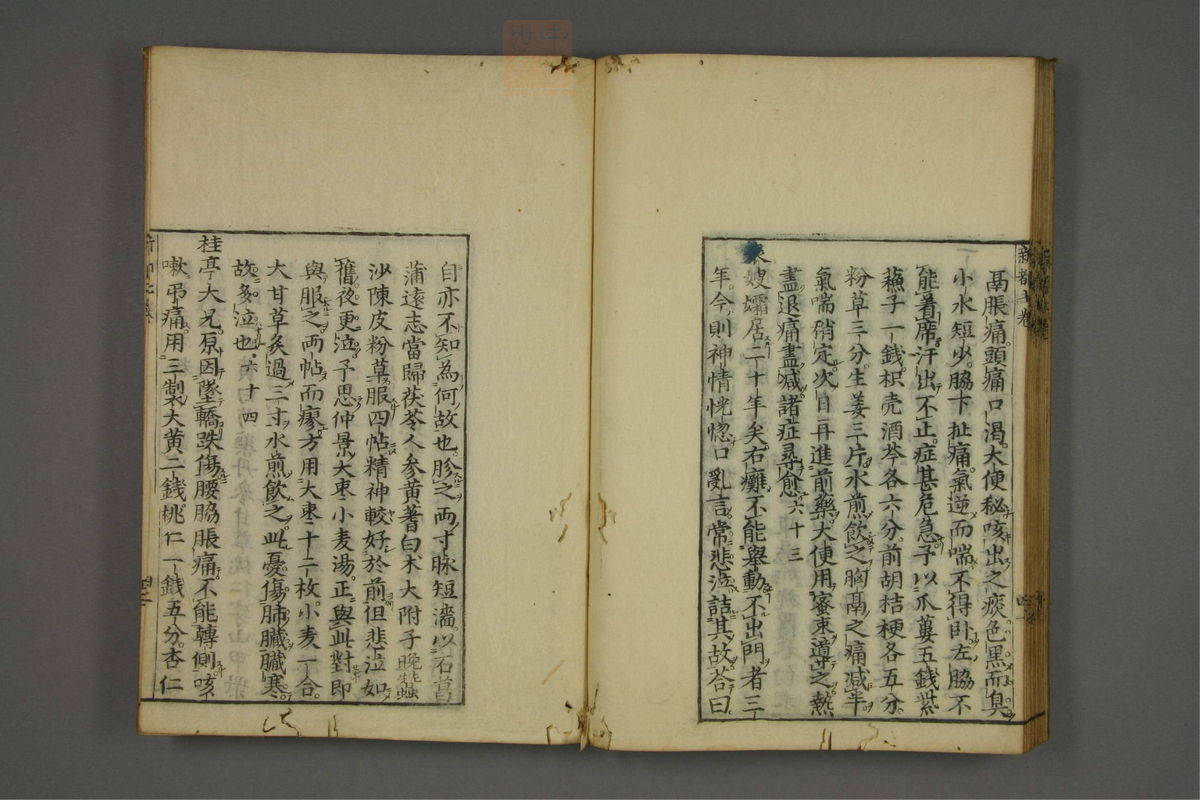 鬲脹痛頭痛口渴大便秘咳出之痰色黑而臭
小水短少脇下扯痛氣逆而喘不得卧左脇不
能着席汗出不止症甚危急予以爪蔞五錢紫
蘓子一錢枳壳酒芩各六分前胡桔梗各五分
粉草三分生姜三片水煎飲之胸鬲之痛減半
氣喘稍定次日再進前藥大便用蜜束導之熱
盡退痛盡減諸症尋愈六十三
嫂孀居二十年矣右癱不能舉動不出門者三
年今則神情恍惚口亂言常悲泣詰其故荅曰
新都 卷
自亦不知為何故也胗之兩寸脉短濇以石菖
蒲遠志當歸茯苓人參黃蓍白术大附子晚蠶
沙陳皮粉草服四帖精神較好於前但悲泣如
舊夜更泣予思仲景大枣小麦湯正與此對即
與服之兩帖而瘳方用大枣十二枚小麦一合
大甘草炙過三寸水煎飲之此憂傷肺臟臟寒
故多泣也六十四
桂亭大兄原因墜轎跌傷腰脇脹痛不能轉側咳
嗽弔痛用三製大黃二錢桃仁一錢五分杏仁